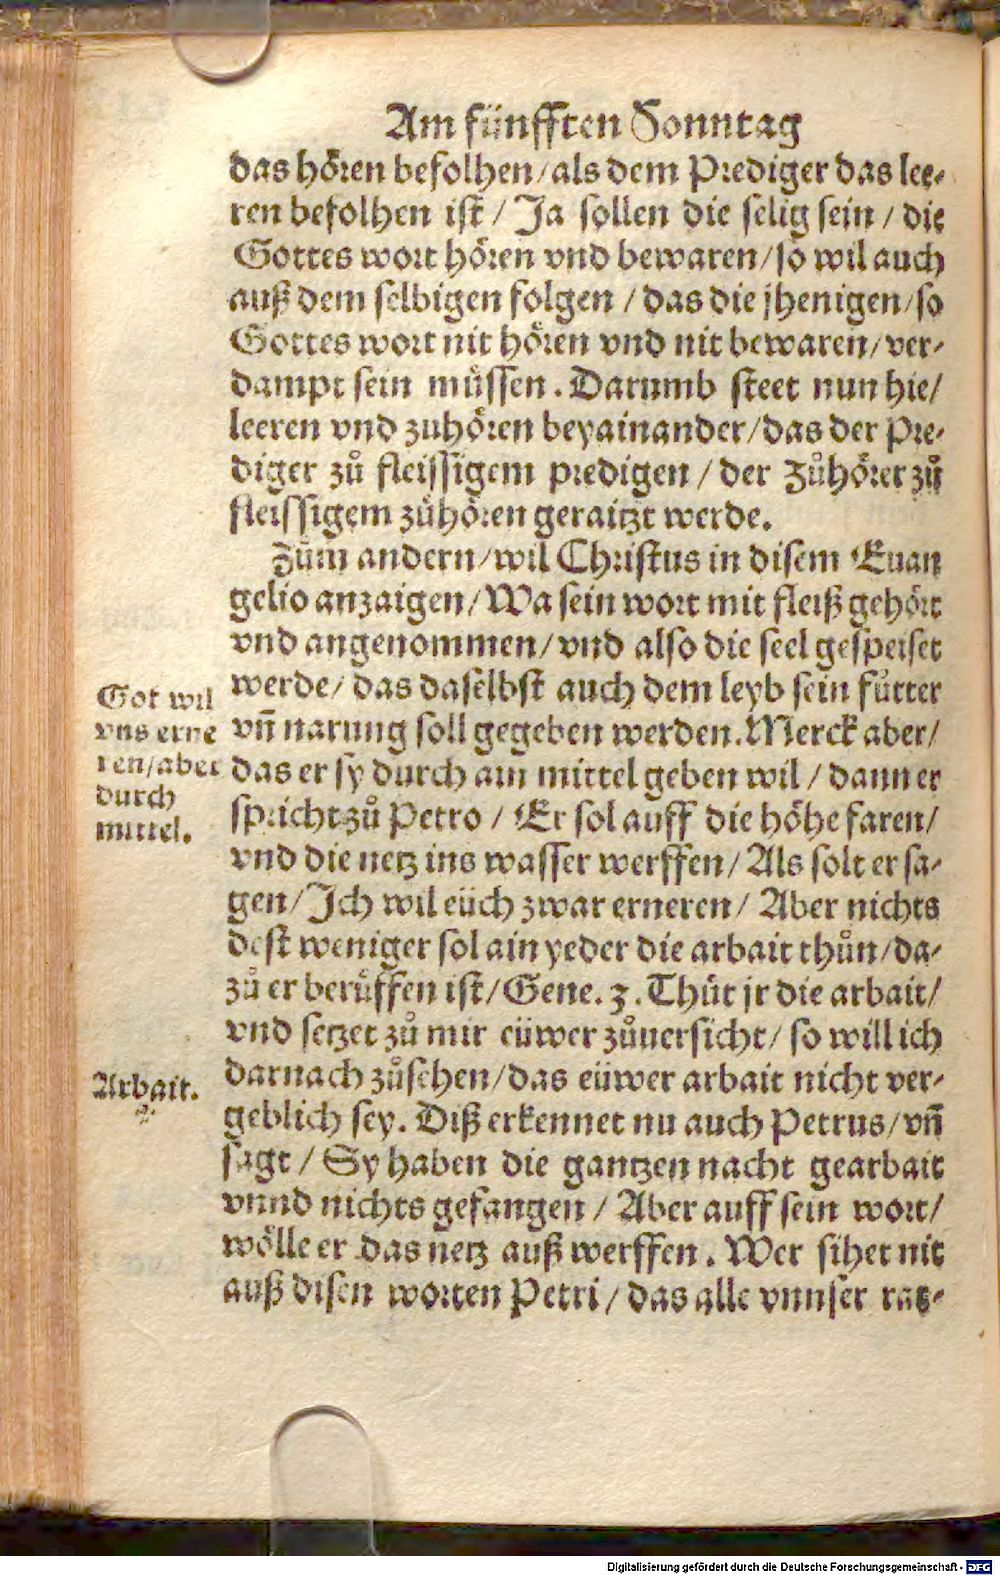 Am fünfften Sonntag
das hören befolhen/als dem Prediger das lee-
ren befolhen ist / Ja sollen die selig sein / die
Gottes wort hören vnd bewaren/so wil auch
auß dem selbigen folgen / das die jhenigen/so
Gottes wort nit hören vnd nit bewaren/ver-
dampt sein müssen. Darumb steet nun hie/
leeren vnd zuhören beyainander/das der Pre-
diger zů fleissigem predigen / der Zůhörer zů
fleissigem zůhören geraitzt werde.
Zům andern/wil Christus in disem Euan
gelio anzaigen/Wa sein wort mit fleiß gehört
vnd angenommen/vnd also die seel gespeiset
werde/das daselbst auch dem leyb sein fůtter
vñ narung soll gegeben werden.Merck aber/
das er sy durch ain mittel geben wil / dann er
spricht zů Petro / Er sol auff die höhe faren/
vnd die netz ins wasser werffen/Als solt er sa-
gen/Ich wil eüch zwar erneren/ Aber nichts
dest weniger sol ain yeder die arbait thůn/da-
zů er berůffen ist/Gene. 3. Thůt jr die arbait/
vnd setzet zů mir eüwer zůuersicht/ so will ich
darnach zůsehen/das eüwer arbait nicht ver-
geblich sey. Diß erkennet nu auch Petrus/vñ
sagt / Sy haben die gantzen nacht gearbait
vnnd nichts gefangen / Aber auff sein wort/
wölle er das netz auß werffen. Wer sihet nit
auß disen worten Petri / das alle vnnser rat-
Got wil
vns erne
ren/aber
durch
mittel.
Arbait.
Digitalisierung gefördert durch die Deutsche Forschungsgemeinschaft - DFG